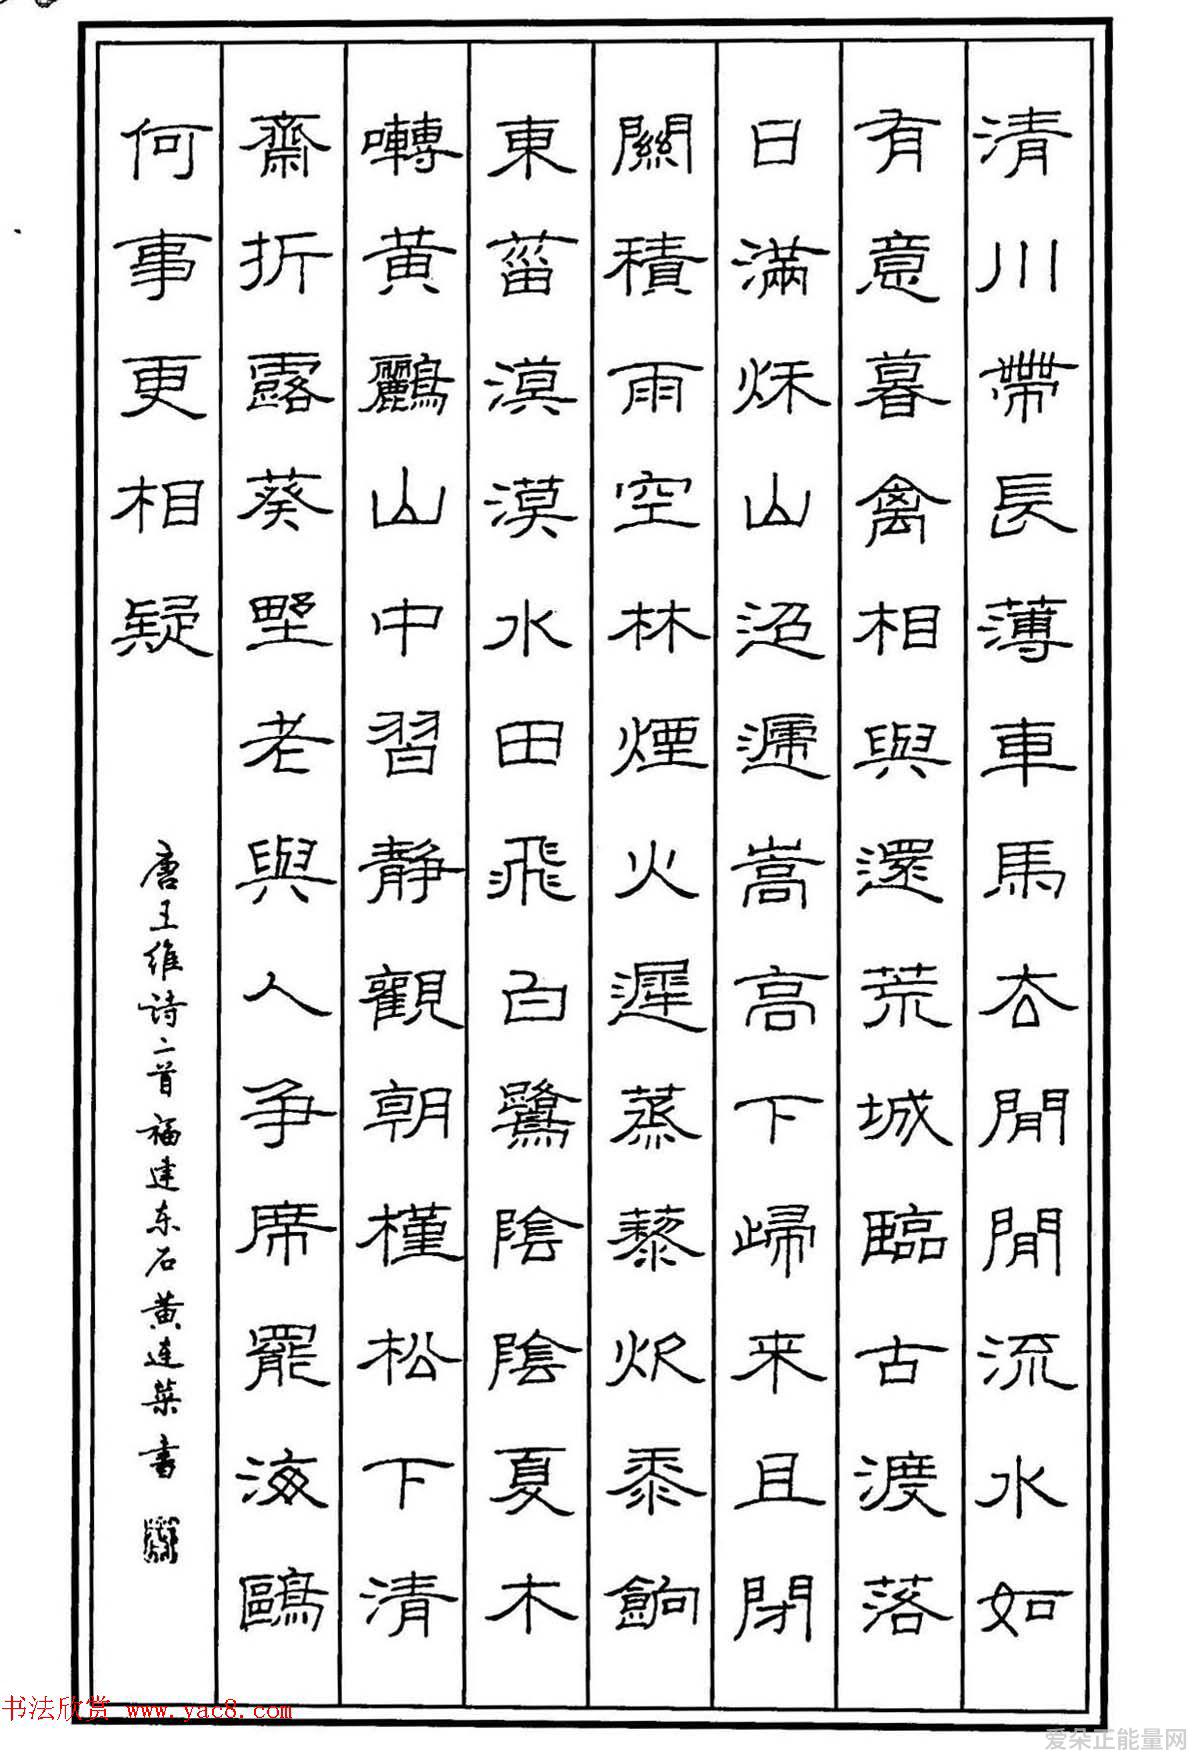 清川帶長薄車馬去閒閒流水如
有意暮禽相與還荒城臨古渡落
日滿秌山迢遞嵩高下歸来且閉
關積雨空林煙火遲蒸藜炊黍餉
東菑漠漠水田飛白鷺陰陰夏木
囀黃鸝山中習靜觀朝槿松下清
齋折露葵野老與人争席罷海鷗
何事更相疑
唐王维诗二首福建东石黄连葉书
书法欣赏 www.yac8.com
爱朵正能量网